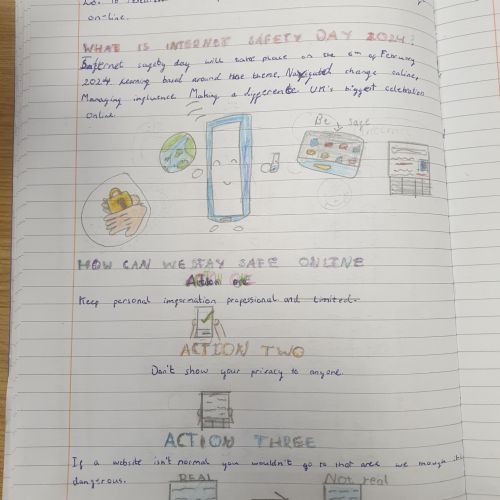 on-line.
WHAT IS INTERNET SAFETY DAY 2024?
Internet safety day will take place on the 6th of February
2024 running based around these theme. Navigated change online,
Managing influence Making a difference UK's biggest celebration
online.
Be safe
HOW CAN WE STAY SAFE ONLINE
Action one
Keep personal imformation professional and limited.
ACTION TWO
Don't show your privacy to anyone.
ACTION THREE
If a website isn't normal you wouldn't go to that area
dangerous.
REAL
Not real